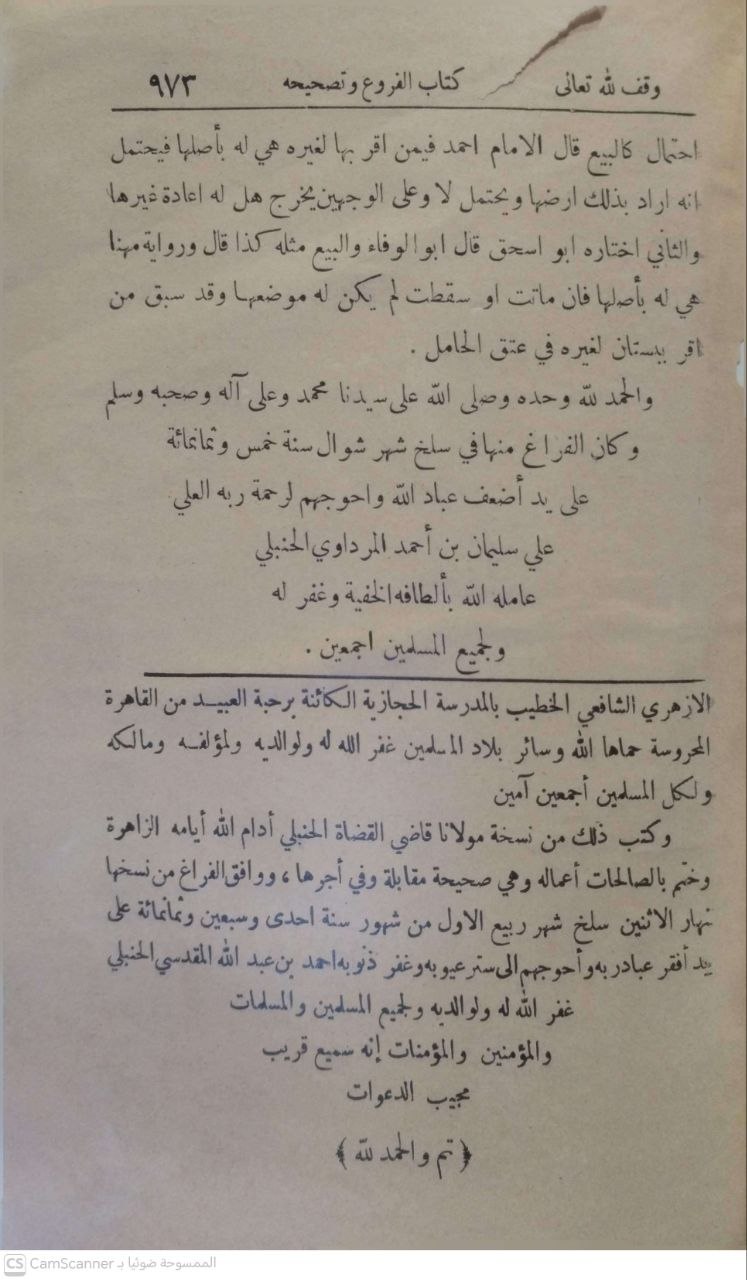 وقف لله تعالى كتاب الفروع وتصحيحه ٩٧٣
احتمال كالبيع قال الامام احمد فيمن اقر بها لغيره هي له بأصلها فيحتمل
انه اراد بذلك ارضها ويحتمل لا وعلى الوجهين يخرج هل له اعادة غيرها
والثاني اختاره ابو اسحق قال ابو الوفاء والبيع مثله كذا قال ورواية مهنا
هي له بأصلها فان ماتت او سقطت لم يكن له موضعها وقد سبق من
اقر ببستان لغيره في عتق الحامل .
والحمد لله وحده وصلى الله على سيدنا محمد وعلى آله وصحبه وسلم
وكان الفراغ منها في سلخ شهر شوال سنة خمس وثمانمائة
على يد أضعف عباد الله واحوجهم لرحمة ربه العلي
علي سليمان بن أحمد المرداوي الحنبلي
عامله الله بألطافه الخفية وغفر له
ولجميع المسلمين اجمعين .
الازهري الشافعي الخطيب بالمدرسة الحجازية الكائنة برحبة العبيد من القاهرة
المحروسة حماها الله وسائر بلاد المسلمين غفر الله له ولوالديه ولمؤلفه ومالكه
ولكل المسلمين أجمعين آمين
وكتب ذلك من نسخة مولانا قاضي القضاة الحنبلي أدام الله أيامه الزاهرة
وختم بالصالحات أعماله وهي صحيحة مقابلة وفي أجرها ، ووافق الفراغ من نسخها
نهار الاثنين سلخ شهر ربيع الاول من شهور سنة احدى وسبعين وثمانمائة على
يد أفقر عباد ربه وأحوجهم الى ستر عيوبه وغفر ذنوبه احمد بن عبد الله المقدسي الحنبلي
غفر الله له ولوالديه ولجميع المسلمين والمسلمات
والمؤمنين والمؤمنات إنه سميع قريب
مجيب الدعوات
﴿ تم والحمد لله ﴾
CS CamScanner الممسوحة ضوئيا بـ